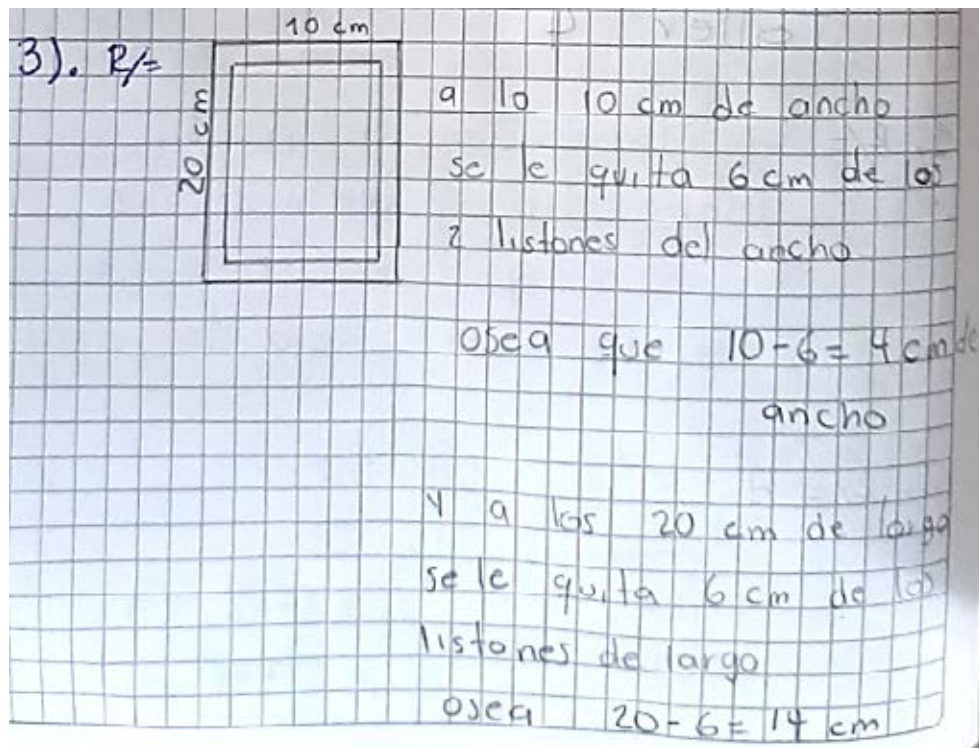 10 cm
3). R/=
20 cm
a lo 10 cm de ancho
se le quita 6 cm de los
2 listones del ancho
osea que 10-6= 4 cm de
ancho
Y a los 20 cm de largo
se le quita 6 cm de los
listones de largo
osea 20-6= 14 cm